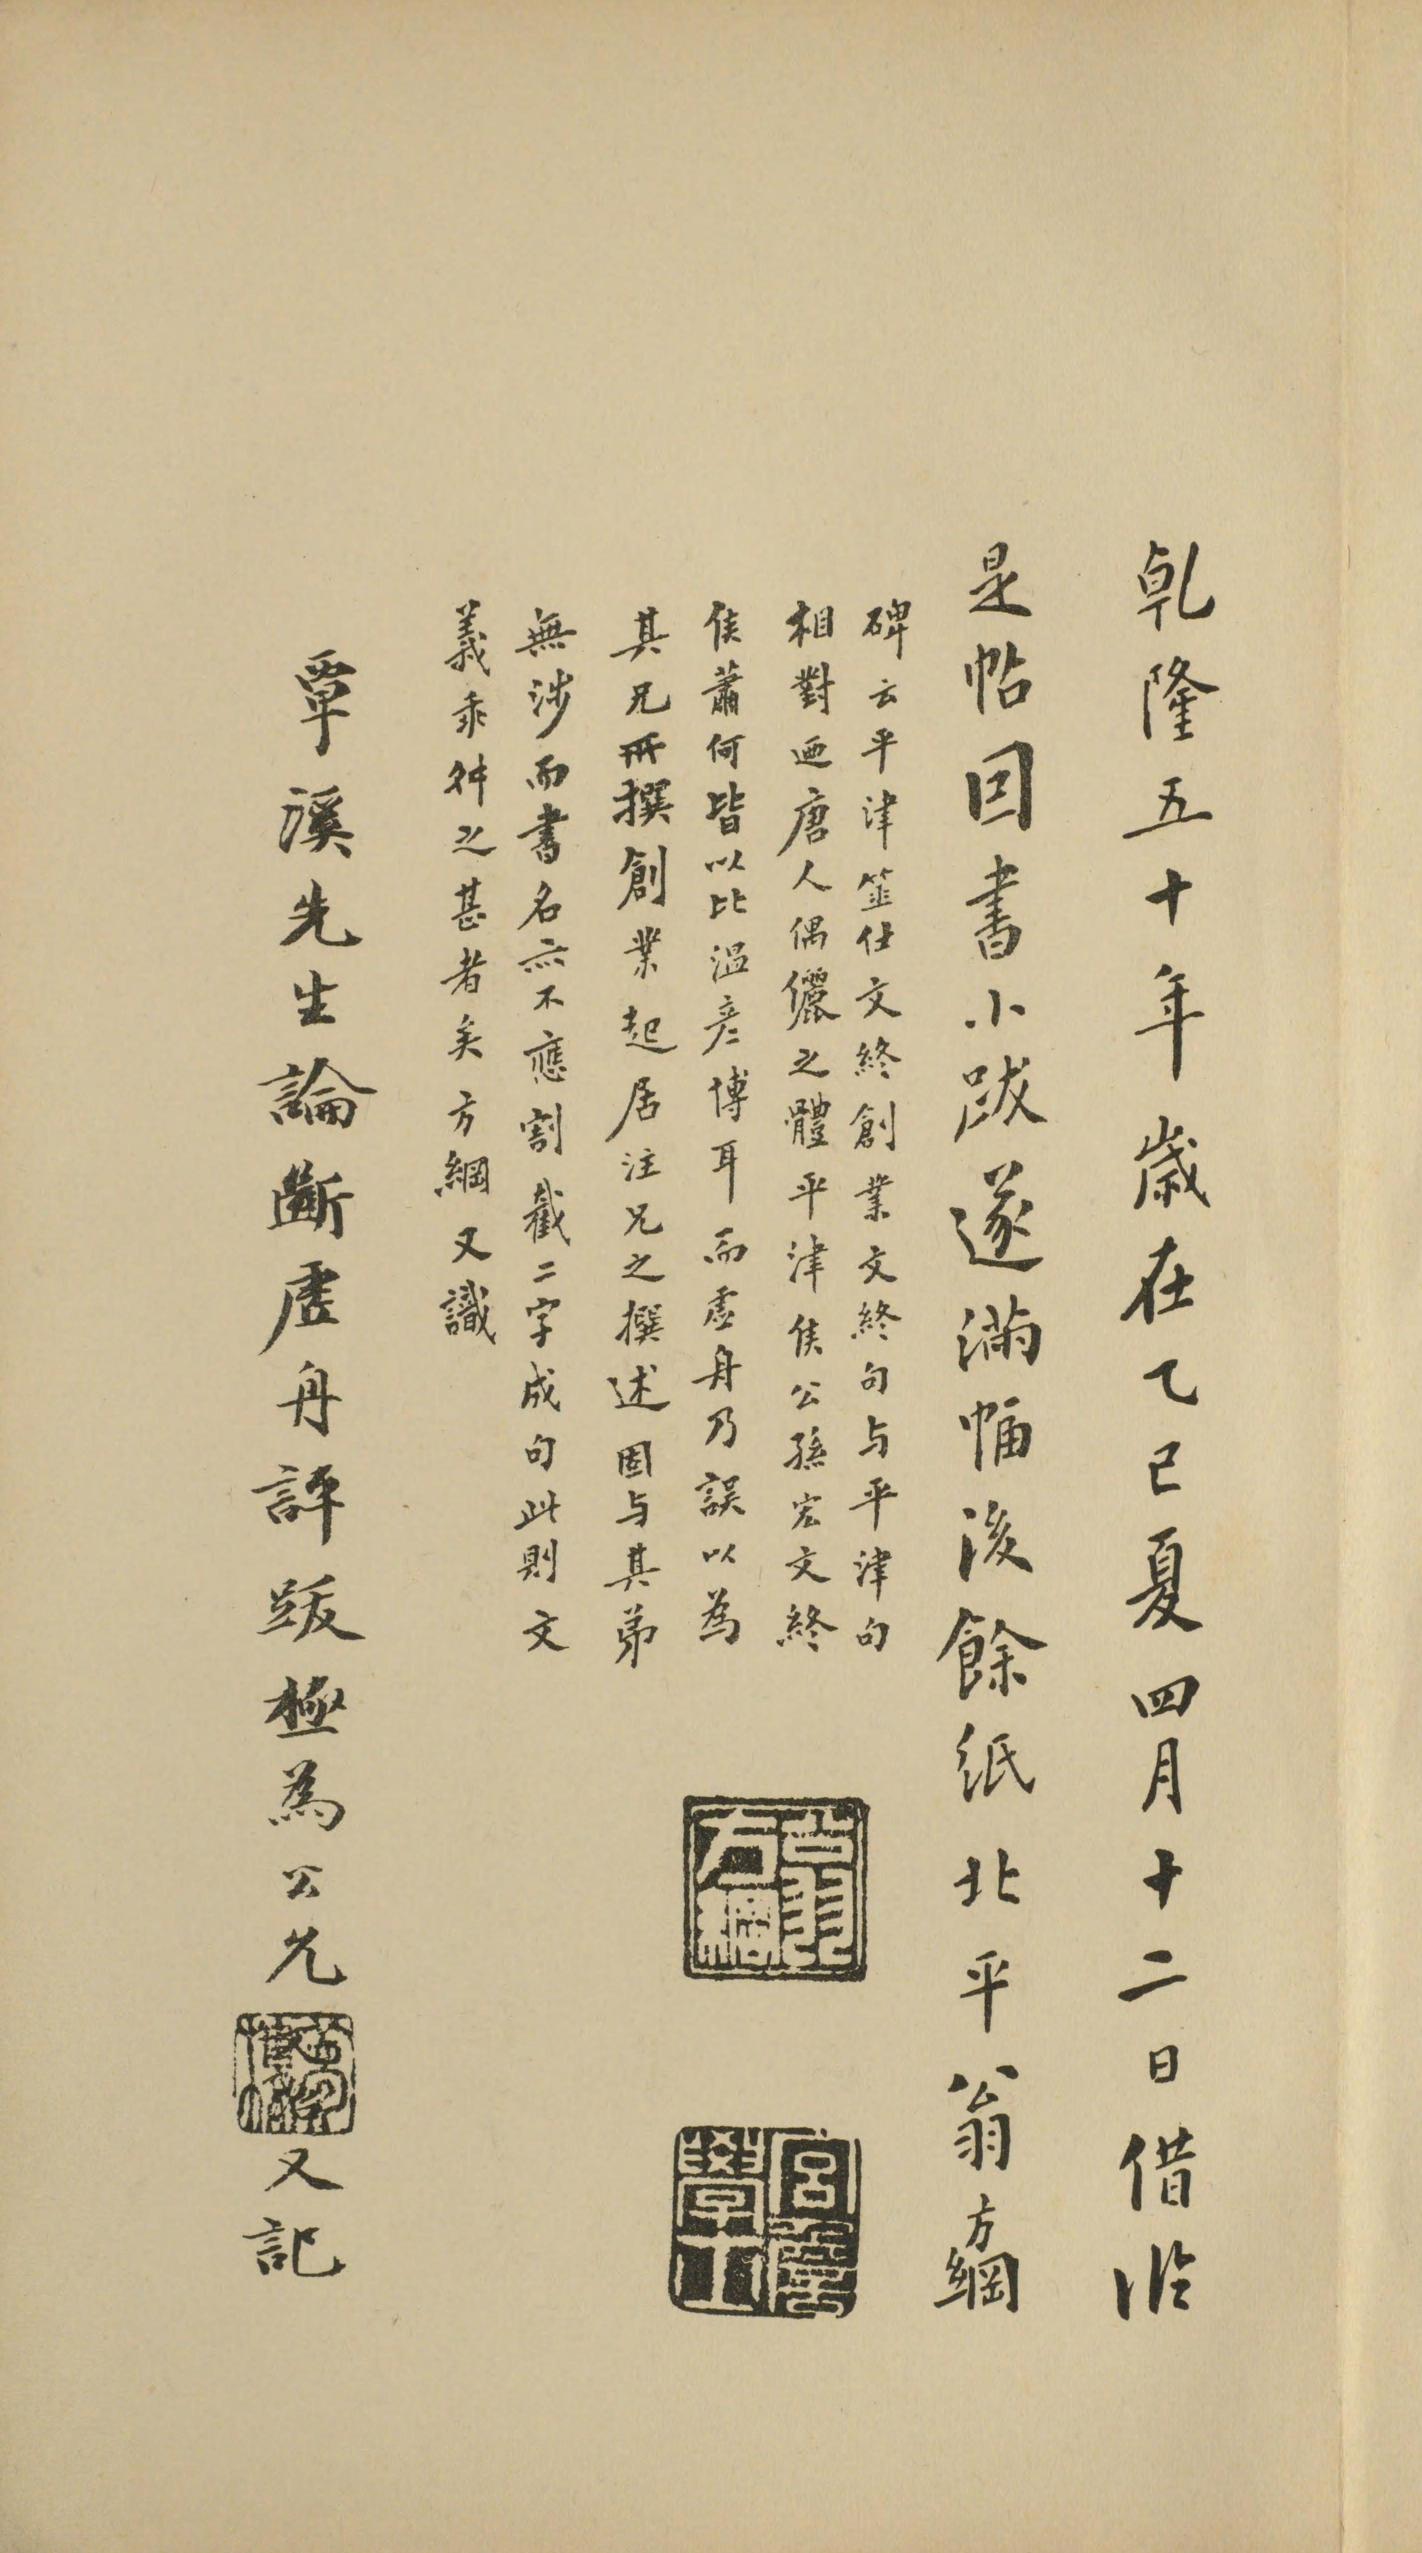 乹隆五十年歲在乙巳夏四月十二日借臨
是帖回書小跋遂滿幅後餘紙北平翁方綱
碑云平津筮仕文終創業文終句与平津句
相對迺唐人偶儷之體平津侯公孫宏文終
侯蕭何皆以比溫彥博耳而虛舟乃誤以為
其兄所撰創業起居注兄之撰述固与其弟
無涉而書名亦不應割截二字成句此則文
義乖舛之甚者矣方綱又識
覃溪先生論斷虛舟評跋極為公允
又記